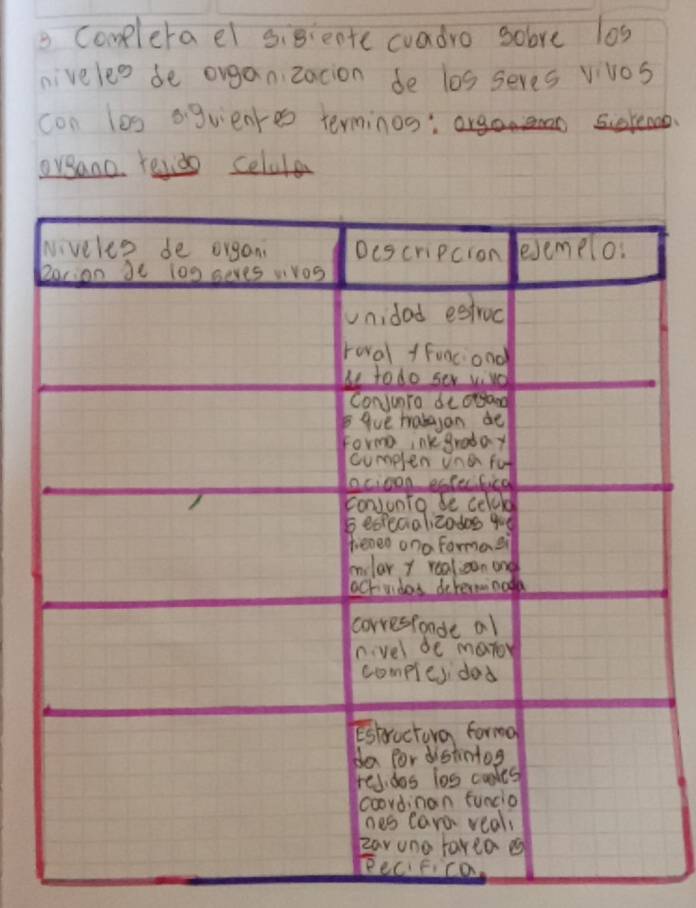 3 Completa el sigiente cuadro sobre los
niveles de organizacion de los seres vivos
con los siguientes terminos: organismo sistema.
organo. tejido celula
Niveles de organi
zacion de los seres vivos
Descripcion
ejemplo:
unidad estruc
tural y funcional
de todo ser vivo
Conjunto de organo
s que trabajan de
forma integrada y
cumplen una fu
ncioon especifica
conjunto de celula
s especializadas que
tienen una forma si
milar y realizan una
actividad determinada
corresponde al
nivel de mayor
complejidad
Estructura forma
da por distintos
tejidos los cuales
coordinan funcio
nes para reali
zar una tarea es
pecifica.